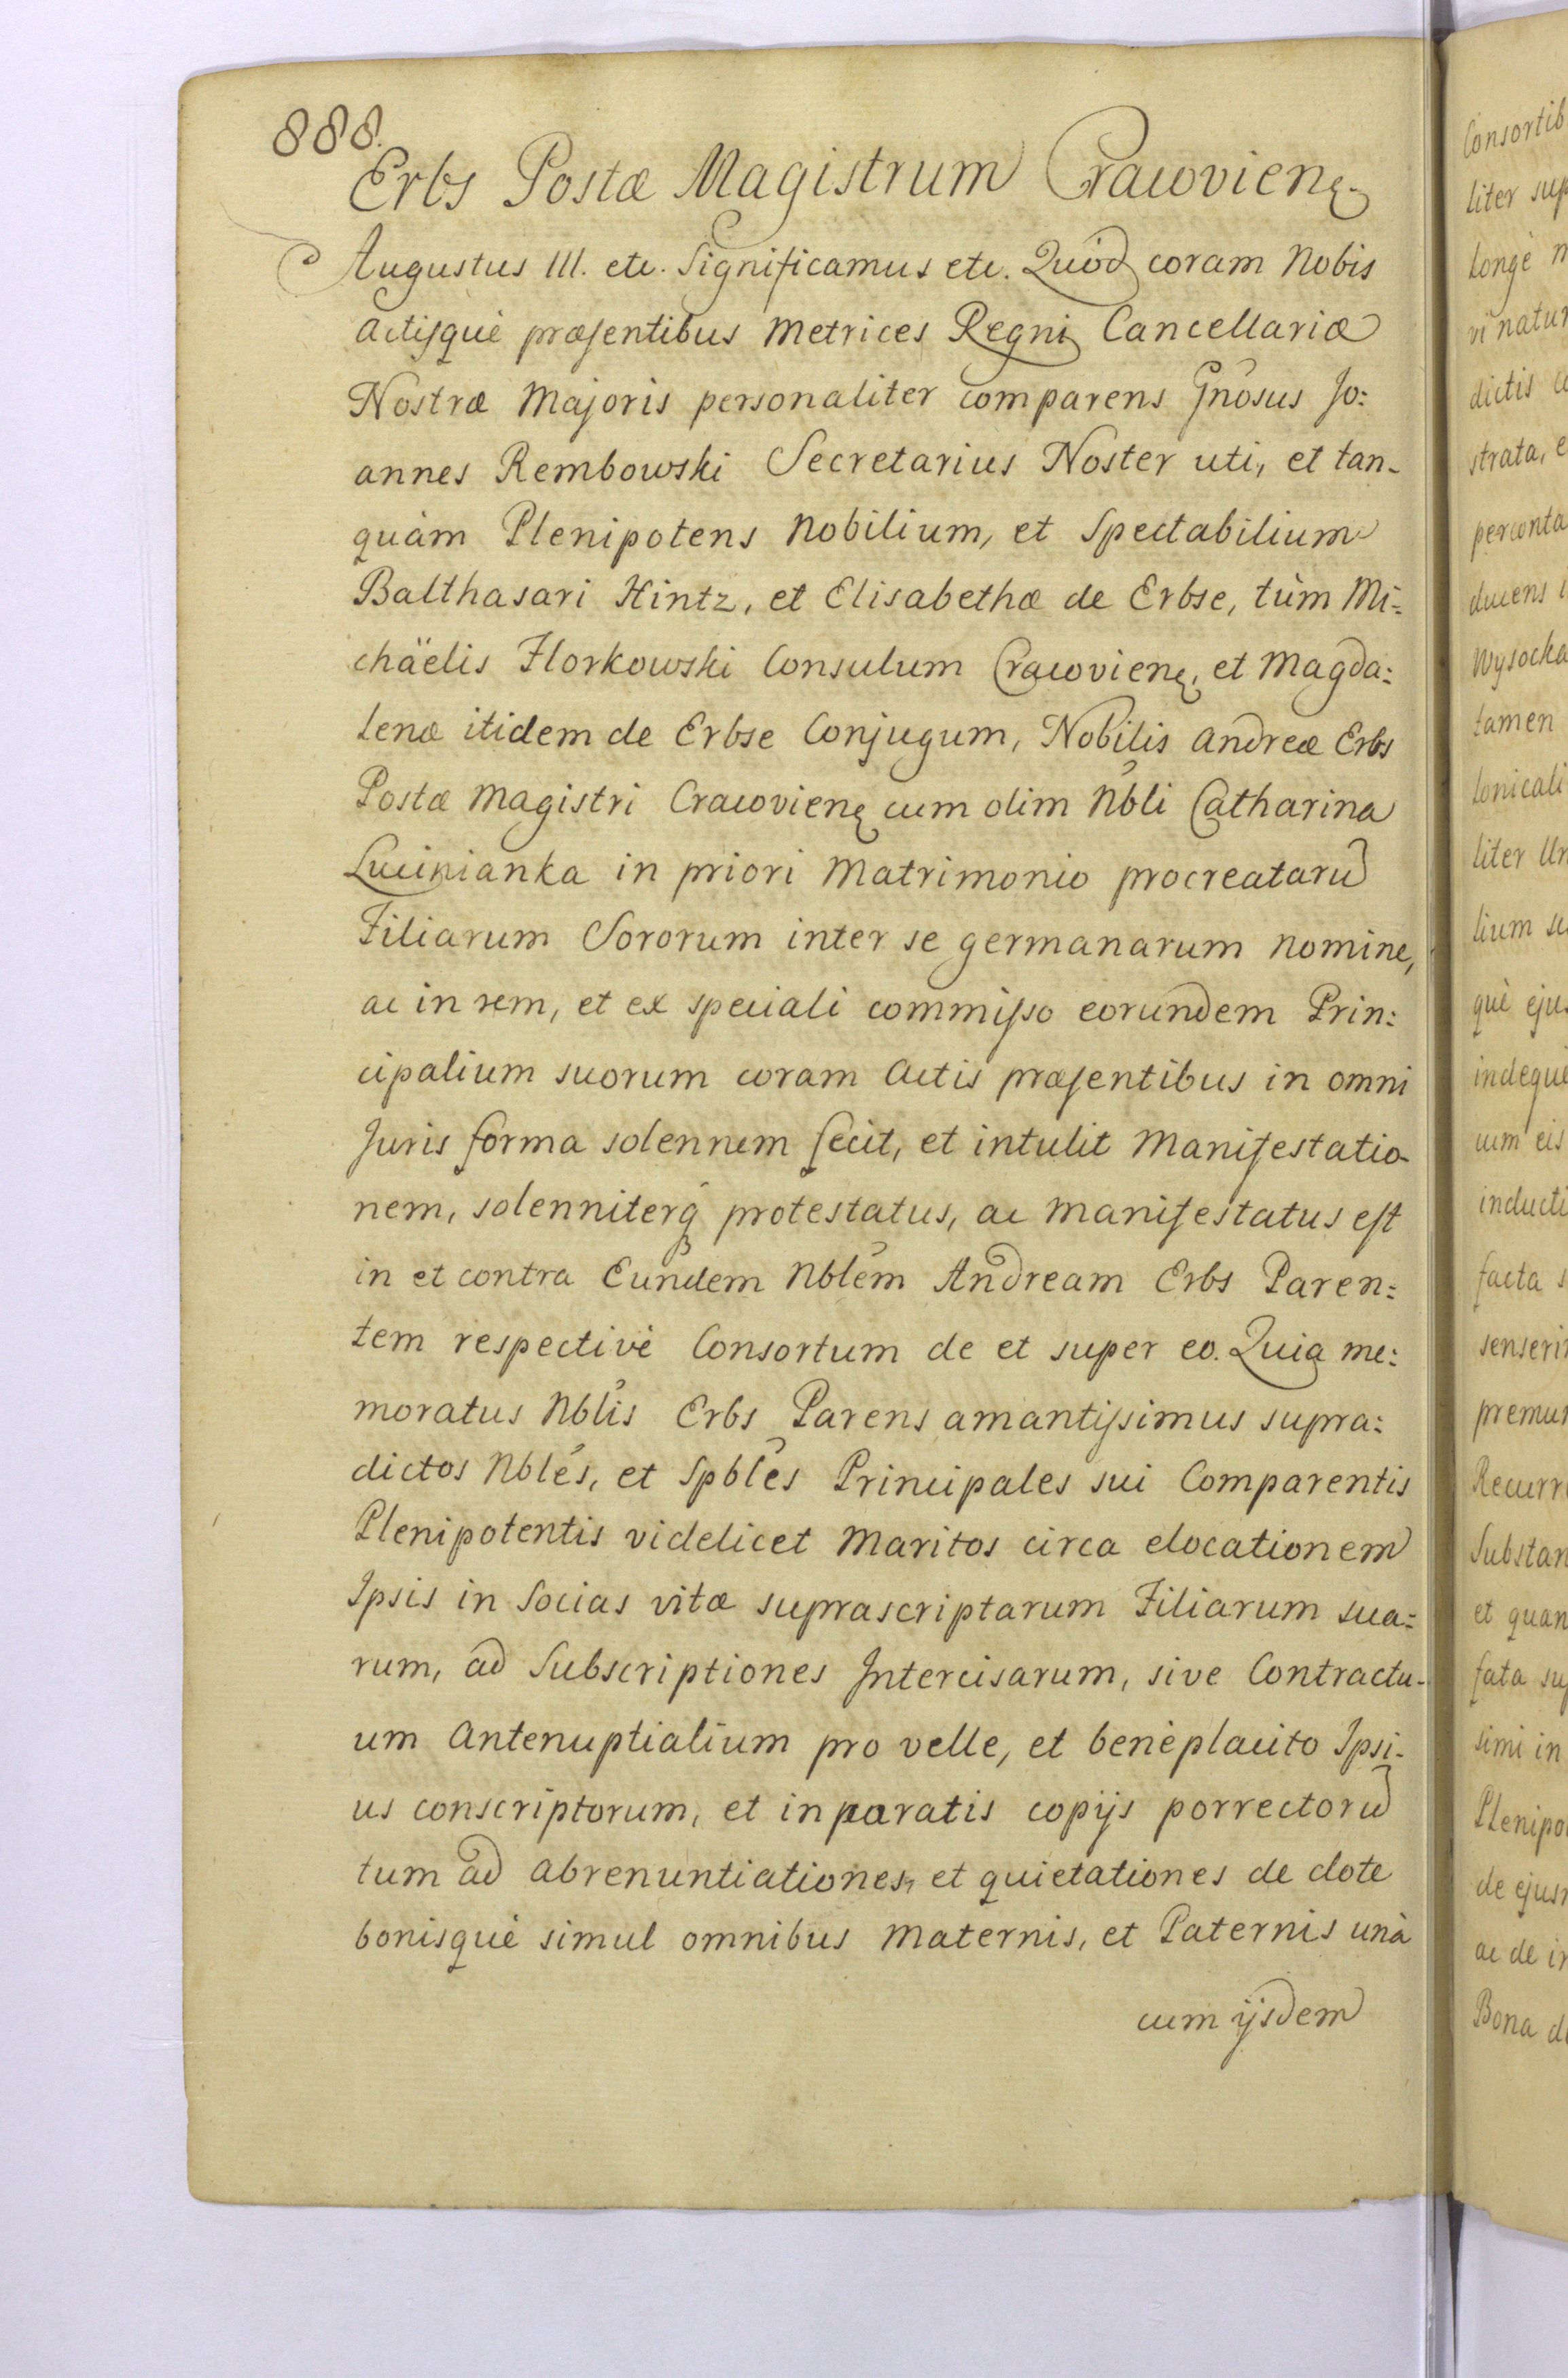 888.
Erbs Postæ Magistrum Cracovienę.
Augustus III. etc. Significamus etc. Quòd coram Nobis
Actisquè præsentibus Metrices Regni Cancellariæ
Nostræ Majoris personaliter comparens Gnosus Jo:
annes Rembowski Secretarius Noster uti, et tan-
quàm Plenipotens Nobilium, et Spectabilium
Balthasari Hintz, et Elisabethæ de Erbse, tùm Mi:
chäelis Florkowski Consulum Cracovienę, et Magda:
lenæ itidem de Erbse Conjugum, Nobilis Andreæ Erbs
Postæ Magistri Cracovienę cum olim Nbli Catharina
Lucinianka in priori Matrimonio procreatarũ
Filiarum Sororum inter se germanarum nomine,
ac in rem, et ex speciali commisso eorundem Prin:
cipalium suorum coram Actis præsentibus in omni
Juris forma solennem fecit, et intulit Manifestatio-
nem, solenniterq́ protestatus, ac manifestatus est
in et contra Eundem Nblem Andream Erbs Paren:
tem respectivè Consortum de et super eo. Quia me:
moratus Nblis Erbs Parens amantissimus supra:
dictos Nbles, et Spbles Principales sui Comparentis
Plenipotentis videlicet Maritos circa elocationem
Ipsis in Socias vitæ suprascriptarum Filiarum sua:
rum, ad Subscriptiones Intercisarum, sive Contractu-
um Antenuptialium pro velle, et benèplacito Ipsi-
us conscriptorum, et in paratis copijs porrectorũ
tum ad Abrenuntiationes, et quietationes de dote
bonisquè simul omnibus Maternis, et Paternis unà
cum ijsdem